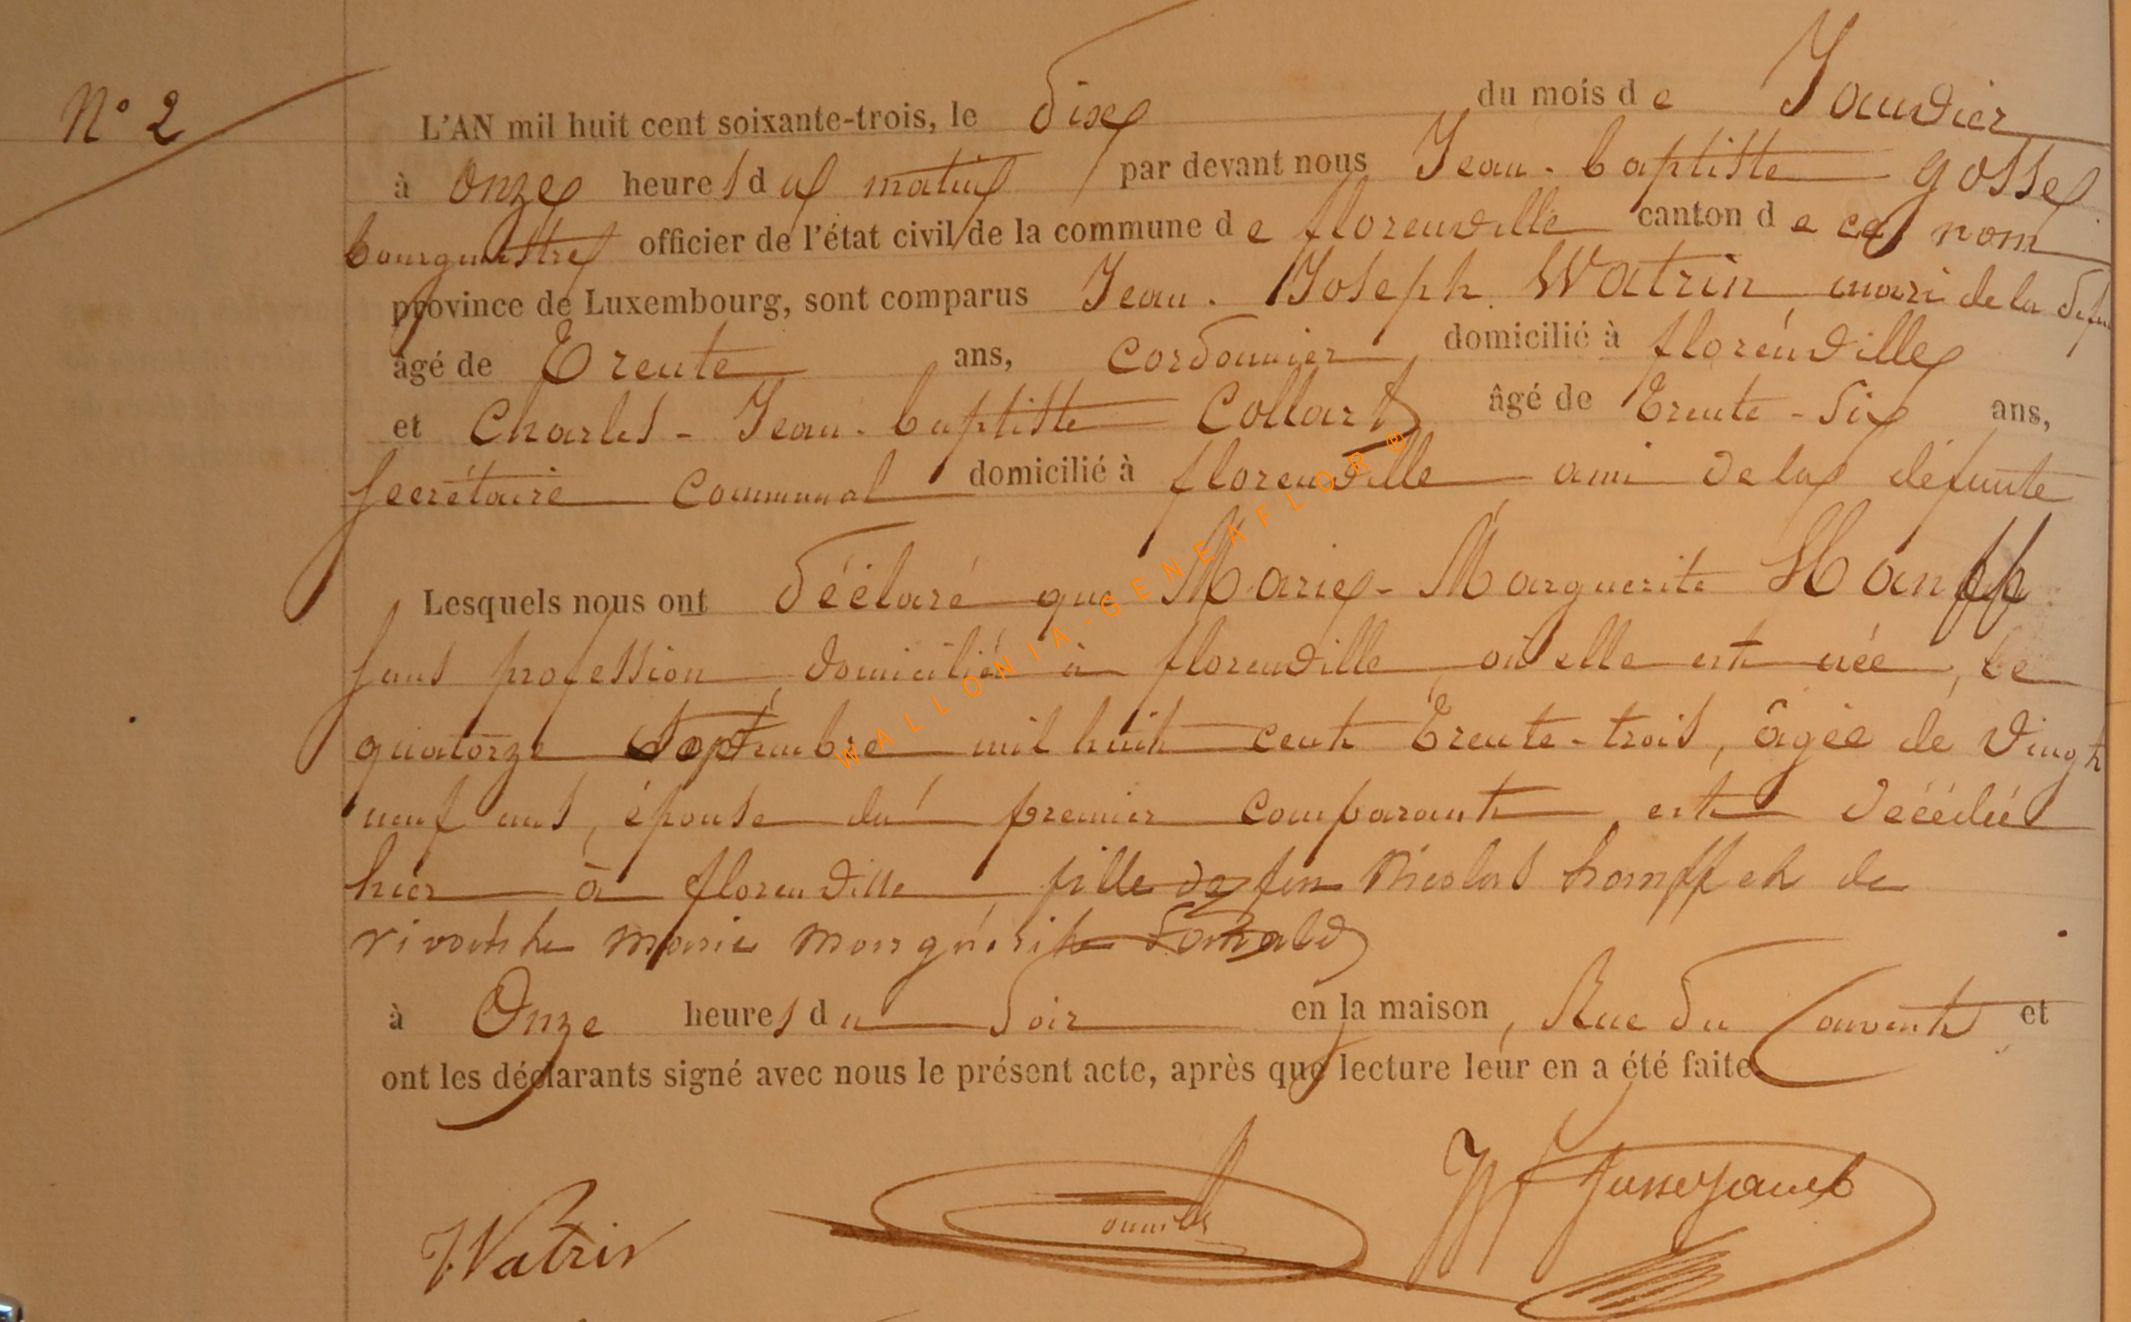 N° 2
L'AN mil huit cent soixante-trois, le dix du mois de Janvier
à onze heures du matin par devant nous Jean-baptiste gosse
bourgmestre officier de l'état civil de la commune de florenville canton de ce nom
province de Luxembourg, sont comparus Jean-Joseph Watrin mari de la
âgé de Trente ans, cordonnier, domicilié à florenville
et Charles-Jean-baptiste Collart âgé de Trente-six ans,
secrétaire communal domicilié à florenville ami de la défunte
Lesquels nous ont déclaré que Marie-Marguerite Hanff
sans profession, domiciliée à florenville, où elle est née, le
quatorze Septembre mil huit cent trente-trois, âgée de vingt
neuf ans, épouse du premier comparant, est décédée
hier à florenville, fille de feu Nicolas hanff et de
vivante marie marguerite
à Onze heures du soir en la maison, Rue du Couvent et
ont les déclarants signé avec nous le présent acte, après que lecture leur en a été faite
JWatrin
WALLONIA-GENEAFLOR®